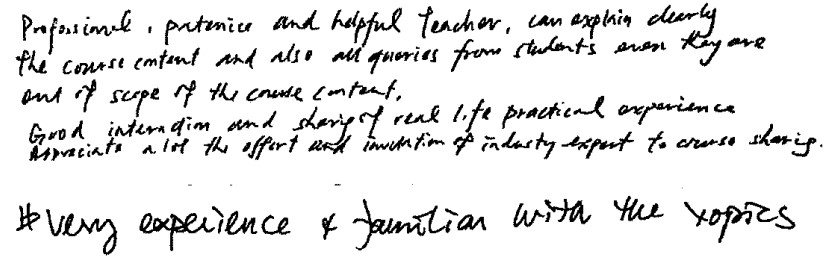 Professional, patenice and helpful Teacher, can explain clearly
the course content and also all queries from students even they are
out of scope of the course content.
Good interaction and sharing of real life practical experience
Appreciate a lot the effort and invitation of industry expert to course sharing.
#Very experience & familiar with the topics